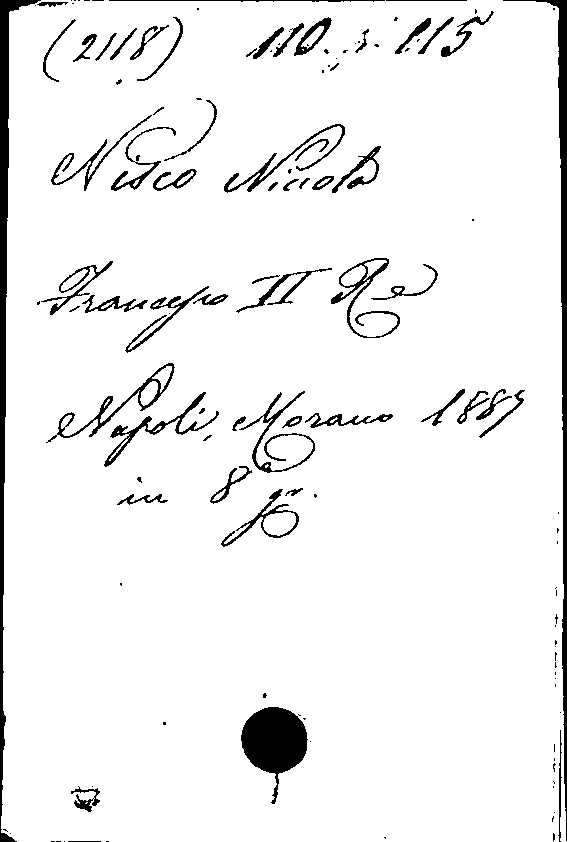 (2118) 110. s. 115
Nisco Niccola
Francesco II Re
Napoli, Morano 1887
in 8° gr.